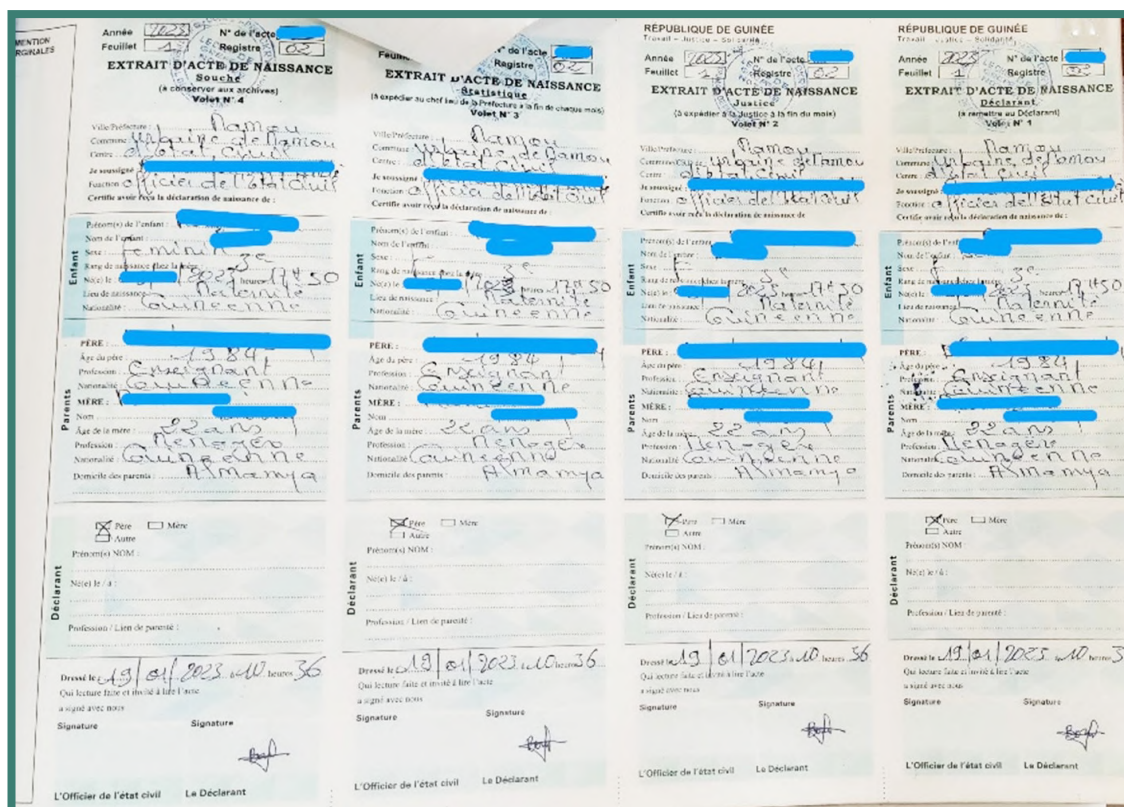 MENTION
MARGINALES
Année 2023 N° de l'acte
Feuillet 1 Registre 02
EXTRAIT D'ACTE DE NAISSANCE
Souche
(à conserver aux archives)
Volet N° 4
Ville/Préfecture : Mamou
Commune urbaine de Mamou
Centre : d'état civil
Je soussigné
Fonction officier de l'Etat Civil
Certifie avoir reçu la déclaration de naissance de :
Enfant
Prénom(s) de l'enfant :
Nom de l'enfant :
Sexe : Feminin
Rang de naissance chez la mère 3e
Né(e) le /2023 heures 17H50
Lieu de naissance : Maternité
Nationalité : Guinéenne
Parents
PÈRE :
Âge du père : 1984
Profession : Enseignant
Nationalité : Guinéenne
MÈRE :
Nom :
Âge de la mère : 22 ans
Profession : Menagère
Nationalité : Guineenne
Domicile des parents : Almamya
Déclarant
Père Mère
Autre
Prénom(s) NOM :
Né(e) le / à :
Profession / Lien de parenté :
Dressé le 19/01/2023 10 heures 36
Qui lecture faite et invité à lire l'acte
a signé avec nous
Signature Signature
L'Officier de l'état civil Le Déclarant
N° de l'acte
Registre 02
EXTRAIT D'ACTE DE NAISSANCE
Statistique
(à expédier au chef lieu de la Préfecture à la fin de chaque mois)
Volet N° 3
Ville/Préfecture : Mamou
Commune urbaine de Mamou
Centre : d'état civil
Je soussigné
Fonction officier de l'Etat Civil
Certifie avoir reçu la déclaration de naissance de :
Enfant
Prénom(s) de l'enfant :
Nom de l'enfant :
Sexe : F
Rang de naissance chez la mère 3e
Né(e) le /2023 heures 17H50
Lieu de naissance : Maternité
Nationalité : Guinéenne
Parents
PÈRE :
Âge du père : 1984
Profession : Enseignant
Nationalité : Guinéenne
MÈRE :
Nom :
Âge de la mère : 22 ans
Profession : Menagère
Nationalité : Guineenne
Domicile des parents : Almamya
Déclarant
Père Mère
Autre
Prénom(s) NOM :
Né(e) le / à :
Profession / Lien de parenté :
Dressé le 19/01/2023 10 heures 36
Qui lecture faite et invité à lire l'acte
a signé avec nous
Signature Signature
L'Officier de l'état civil Le Déclarant
RÉPUBLIQUE DE GUINÉE
Travail – Justice – Solidarité
Année 2023 N° de l'acte
Feuillet 1 Registre 02
EXTRAIT D'ACTE DE NAISSANCE
Justice
(à expédier à la Justice à la fin du mois)
Volet N° 2
Ville/Préfecture : Mamou
Commune urbaine de Mamou
Centre : d'état civil
Je soussigné
Fonction officier de l'Etat Civil
Certifie avoir reçu la déclaration de naissance de
Enfant
Prénom(s) de l'enfant
Nom de l'enfant
Sexe : F
Rang de naissance chez la mère 3e
Né(e) le 2023 heures 17H50
Lieu de naissance : Maternité
Nationalité : Guinéenne
Parents
PÈRE :
Âge du père : 1984
Profession : Enseignant
Nationalité : Guinéenne
MÈRE :
Nom
Âge de la mère : 22 ans
Profession : Menagère
Nationalité : Guineenne
Domicile des parents : Almamya
Déclarant
Père Mère
Autre
Prénom(s) NOM :
Né(e) le / à :
Profession / Lien de parenté :
Dressé le 19/01/2023 10 heures 36
Qui lecture faite et invité à lire l'acte
a signé avec nous
Signature Signature
L'Officier de l'état civil Le Déclarant
RÉPUBLIQUE DE GUINÉE
Travail – Justice – Solidarité
Année 2023 N° de l'acte
Feuillet 1 Registre 02
EXTRAIT D'ACTE DE NAISSANCE
Déclarant
(à remettre au Déclarant)
Volet N° 1
Ville/Préfecture : Mamou
Commune urbaine de Mamou
Centre : d'état civil
Je soussigné
Fonction officier de l'Etat Civil
Certifie avoir reçu la déclaration de naissance de :
Enfant
Prénom(s) de l'enfant
Nom de l'enfant :
Sexe : F
Rang de naissance chez la mère 3e
Né(e) le 2023 heures 17H50
Lieu de naissance : Maternité
Nationalité : Guinéenne
Parents
PÈRE :
Âge du père : 1984
Profession : Enseignant
Nationalité : Guinéenne
MÈRE :
Nom
Âge de la mère : 22 ans
Profession : Menagère
Nationalité : Guineenne
Domicile des parents : Almamya
Déclarant
Père Mère
Autre
Prénom(s) NOM :
Né(e) le / à :
Profession / Lien de parenté :
Dressé le 19/01/2023 10 heures 36
Qui lecture faite et invité à lire l'acte
a signé avec nous
Signature Signature
L'Officier de l'état civil Le Déclarant